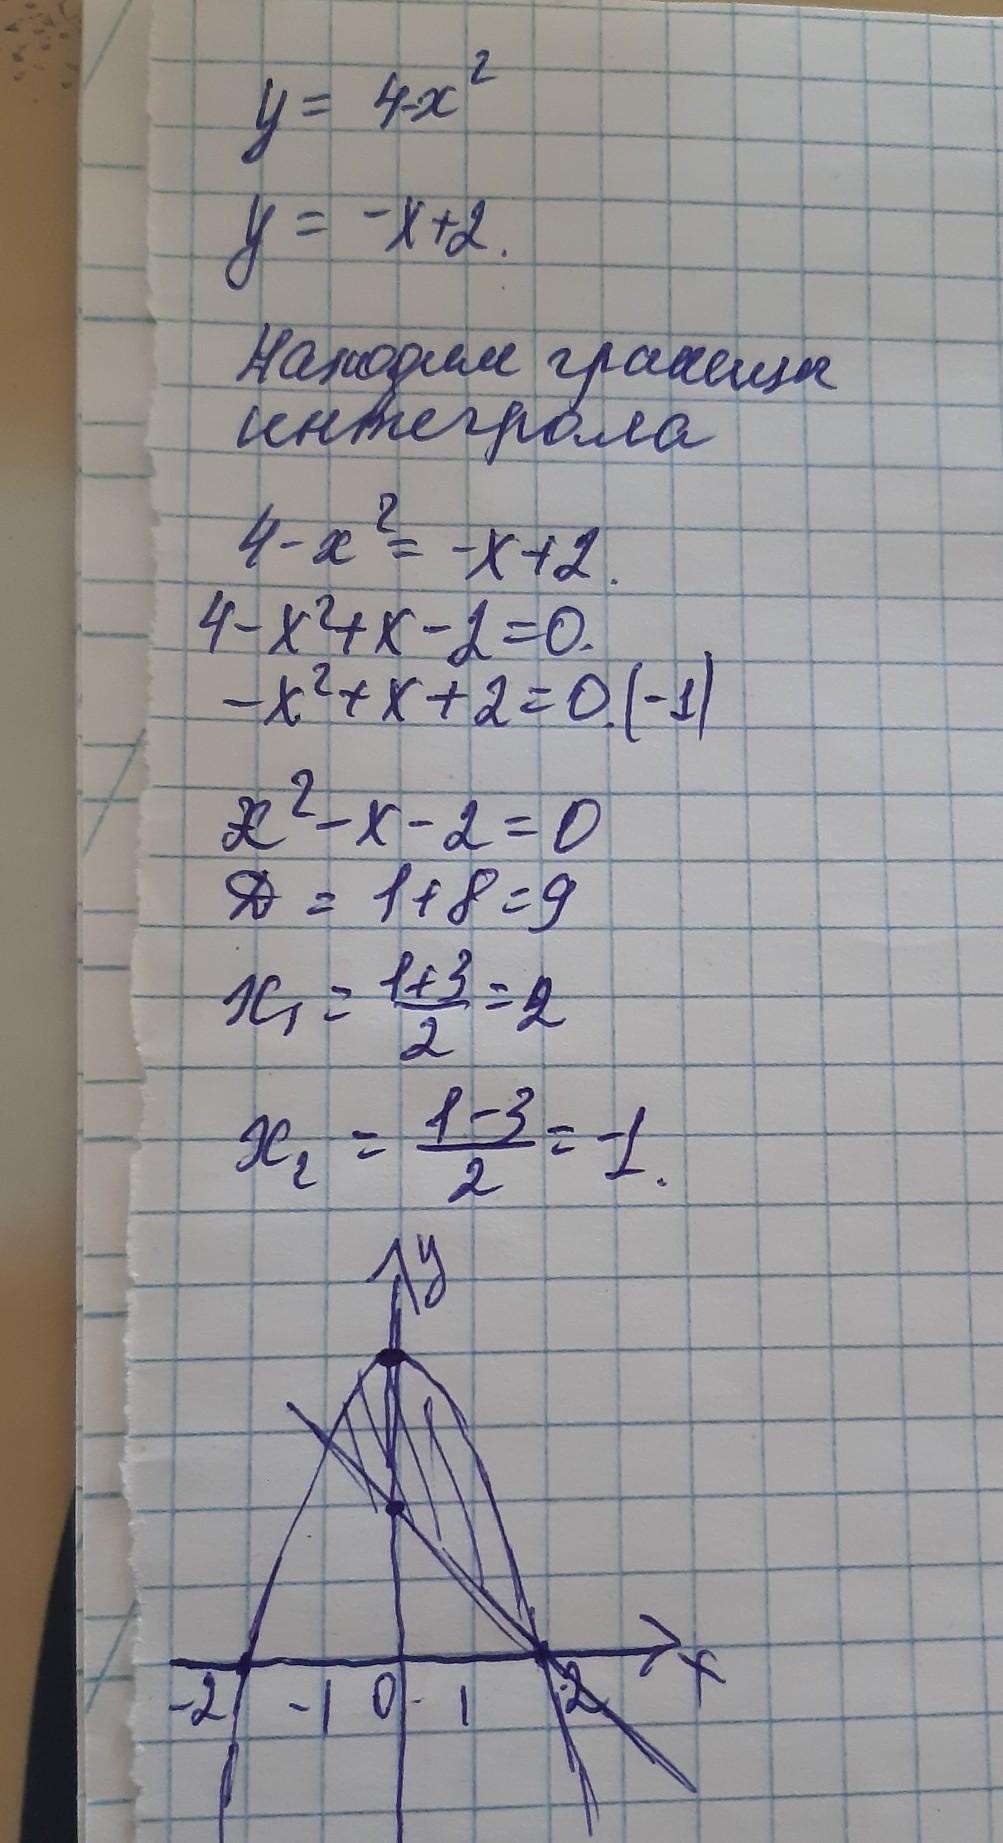 y = 4-x²
y = -x+2.
Находим границы
интеграла
4-x² = -x+2.
4-x²+x-2=0.
-x²+x+2=0.(-1)
x²-x-2=0
D = 1+8=9
x₁ = \frac{1+3}{2} = 2
x₂ = \frac{1-3}{2} = -1.
y
x
-2 -1 0 1 2